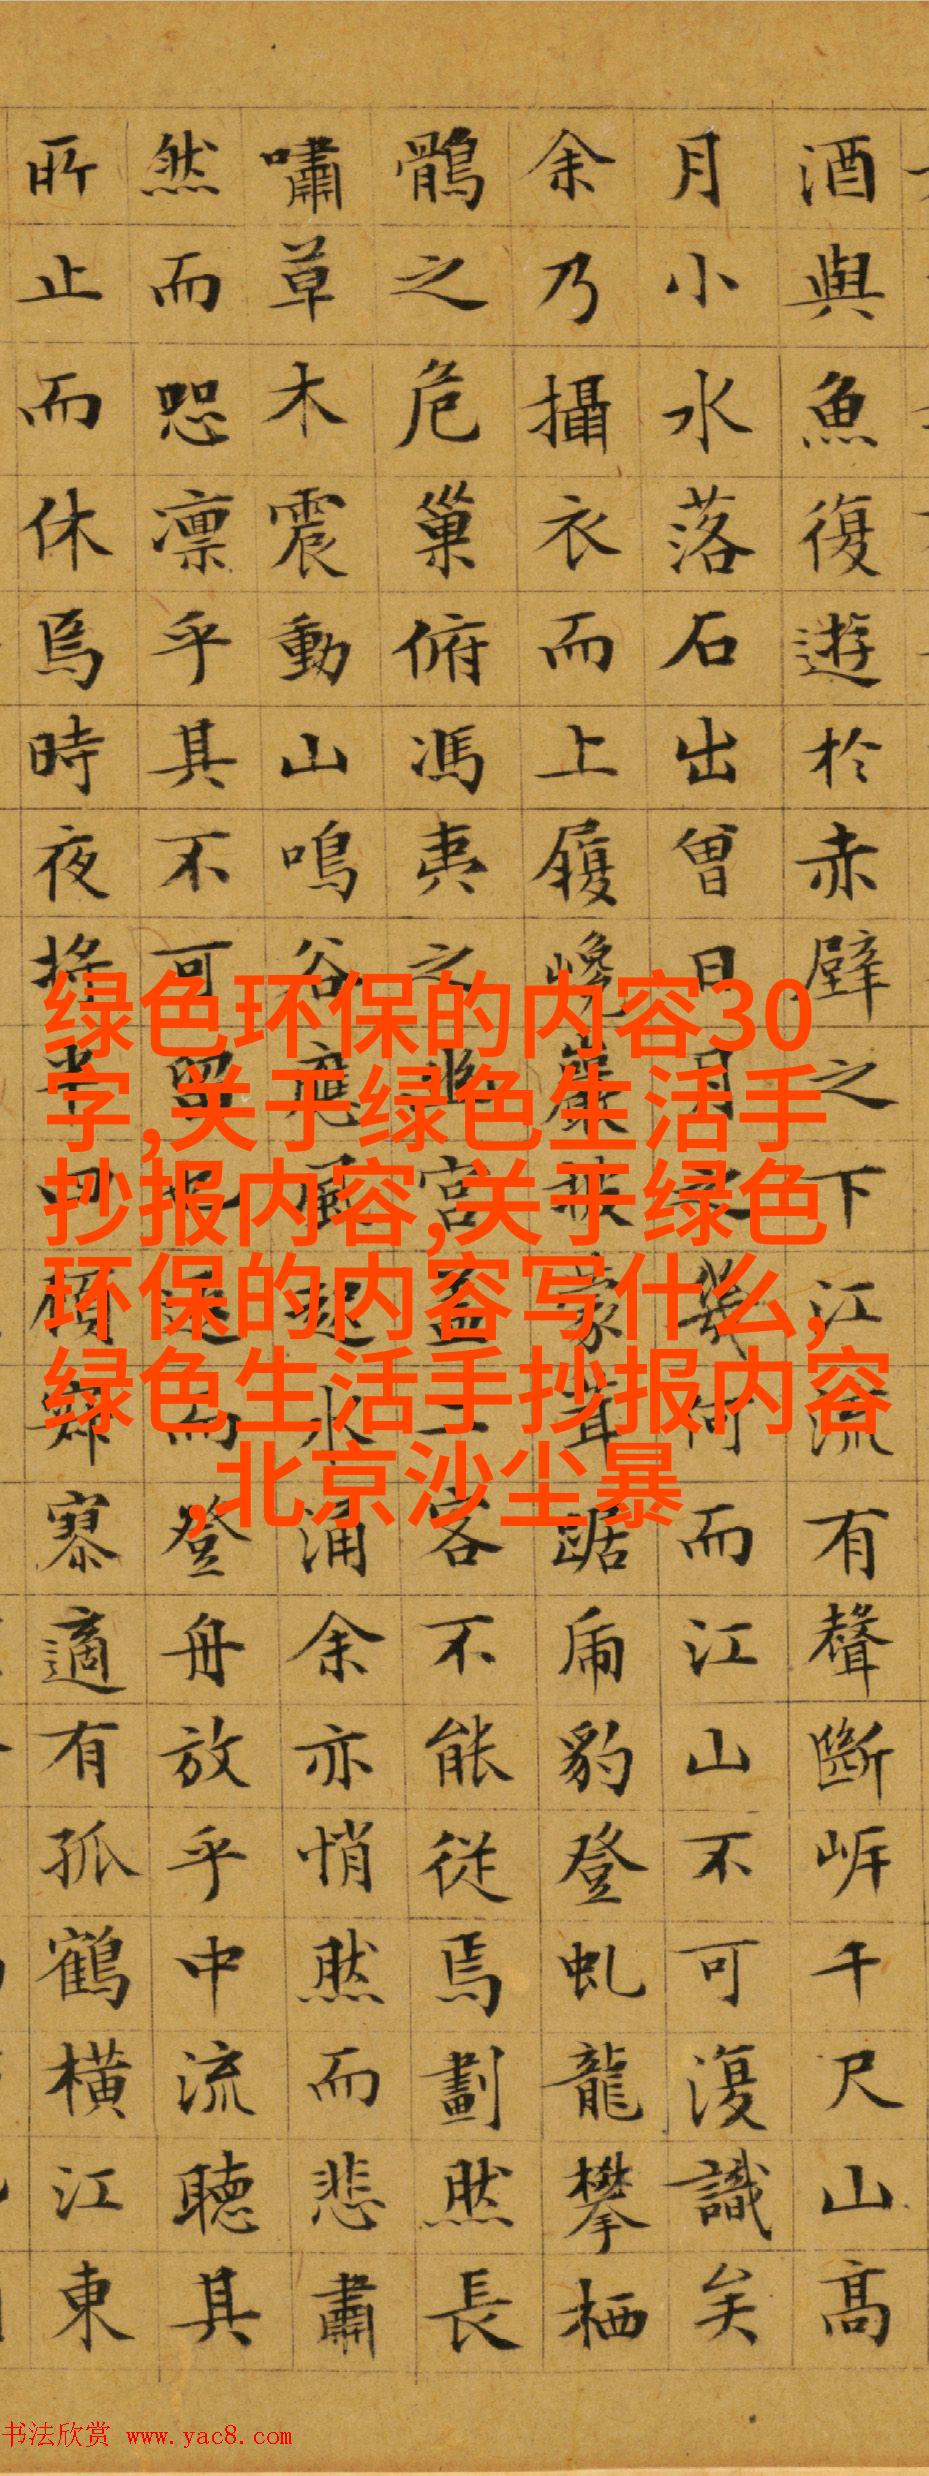 酒與魚復遊於赤壁之下江流有聲斷岸千尺山高
月小水落石出曾日月之幾何而江山不可復識矣
余乃攝衣而上履巉巖披蒙茸踞虎豹登虬龍攀栖
鶻之危巢俯馮夷之幽宮盖二客不能從焉劃然長
嘯草木震動山鳴谷應風起水涌余亦悄然而悲肅
然而恐凛乎其不可留也返而登舟放乎中流聽其
所止而休焉時夜将半四顧寂寥適有孤鶴橫江東
绿色环保的内容30
字,关于绿色生活手
抄报内容,关于绿色
环保的内容写什么,
绿色生活手抄报内容
,北京沙尘暴
书法欣赏 www.yac8.com